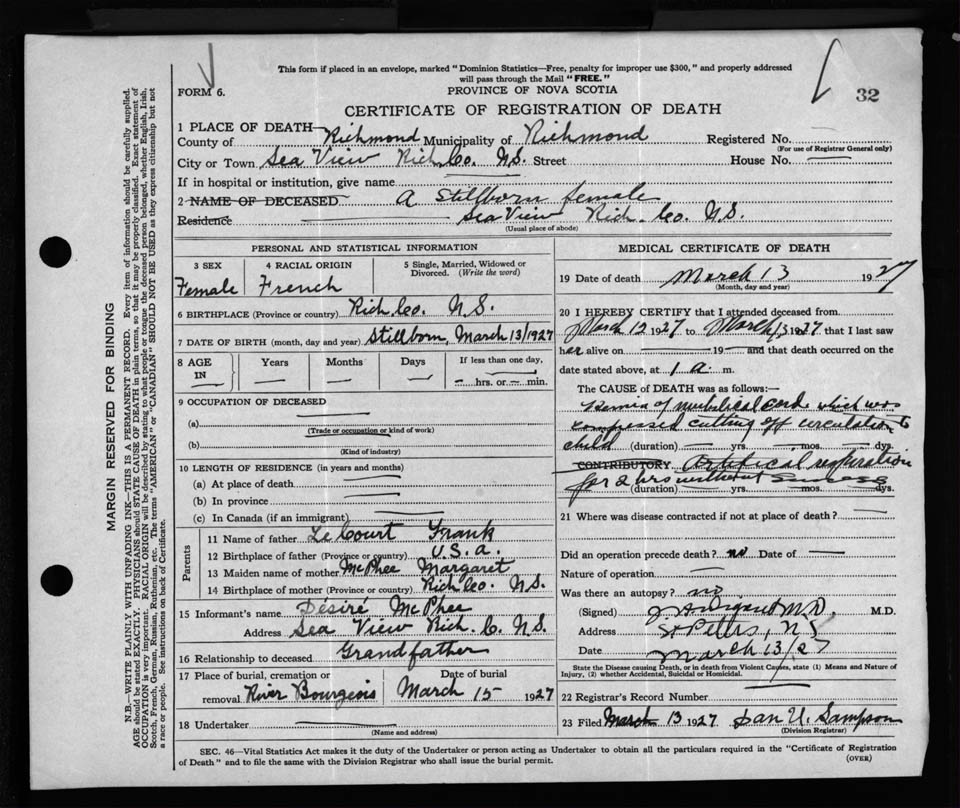 This form if placed in an envelope, marked "Dominion Statistics—Free, penalty for improper use $300," and properly addressed
will pass through the Mail "FREE."
FORM 6.
PROVINCE OF NOVA SCOTIA
32
CERTIFICATE OF REGISTRATION OF DEATH
1 PLACE OF DEATH—
County of Richmond Municipality of Richmond Registered No.
(For use of Registrar General only)
City or Town Sea View Rich. Co. N.S. Street House No. —
If in hospital or institution, give name
2 NAME OF DECEASED A Stillborn female
Residence Sea View Rich. Co. N.S.
(Usual place of abode)
PERSONAL AND STATISTICAL INFORMATION
3 SEX 4 RACIAL ORIGIN 5 Single, Married, Widowed or
Divorced. (Write the word)
Female French
6 BIRTHPLACE (Province or country) Rich. Co. N.S.
7 DATE OF BIRTH (month, day and year) Stillborn, March 13/1927
8 AGE IN Years Months Days If less than one day,
— — — — hrs. or — min.
9 OCCUPATION OF DECEASED
(a)
(Trade or occupation or kind of work)
(b)
(Kind of industry)
10 LENGTH OF RESIDENCE (in years and months)
(a) At place of death
(b) In province
(c) In Canada (if an immigrant)
Parents
11 Name of father LeCourt Frank
12 Birthplace of father (Province or country) U.S.A.
13 Maiden name of mother McPhee Margaret
14 Birthplace of mother (Province or country) Rich Co. N.S.
15 Informant's name Désiré McPhee
Address Sea View Rich. C. N.S.
16 Relationship to deceased Grandfather
17 Place of burial, cremation or Date of burial
removal River Bourgeois March 15 1927
18 Undertaker
(Name and address)
MEDICAL CERTIFICATE OF DEATH
19 Date of death March 13 1927
(Month, day and year)
20 I HEREBY CERTIFY that I attended deceased from
March 12 1927 to March 13 1927 that I last saw
her alive on — 19 — and that death occurred on the
date stated above, at 1 a. m.
The CAUSE of DEATH was as follows:—
of umbilical cord which was
compressed cutting off circulation to
child (duration) — yrs. — mos. — dys.
CONTRIBUTORY Artifical respiration
for 2 hrs without success
(duration) yrs. mos. dys.
21 Where was disease contracted if not at place of death? —
Did an operation precede death? no Date of —
Nature of operation —
Was there an autopsy? no
(Signed) M.D. M.D.
Address St Peters, N.S.
Date March 13/27
State the Disease causing Death, or in death from Violent Causes, state (1) Means and Nature of
Injury, (2) whether Accidental, Suicidal or Homicidal.
22 Registrar's Record Number
23 Filed March 13 1927 Dan U. Sampson
(Division Registrar)
SEC. 46—Vital Statistics Act makes it the duty of the Undertaker or person acting as Undertaker to obtain all the particulars required in the "Certificate of Registration
of Death" and to file the same with the Division Registrar who shall issue the burial permit.
(OVER)
MARGIN RESERVED FOR BINDING
N.B.—WRITE PLAINLY WITH UNFADING INK—THIS IS A PERMANENT RECORD. Every item of information should be carefully supplied.
AGE should be stated EXACTLY. PHYSICIANS should STATE CAUSE OF DEATH in plain terms, so that it may be properly classified. Exact statement of
OCCUPATION is very important. RACIAL ORIGIN will be described by stating to what people or race the deceased person belonged, whether English, Irish,
Scotch, French, German, Russian, Ruthenian, etc. The terms "AMERICAN" or "CANADIAN" SHOULD NOT BE USED as they express citizenship but not
a race or people. See instructions on back of Certificate.